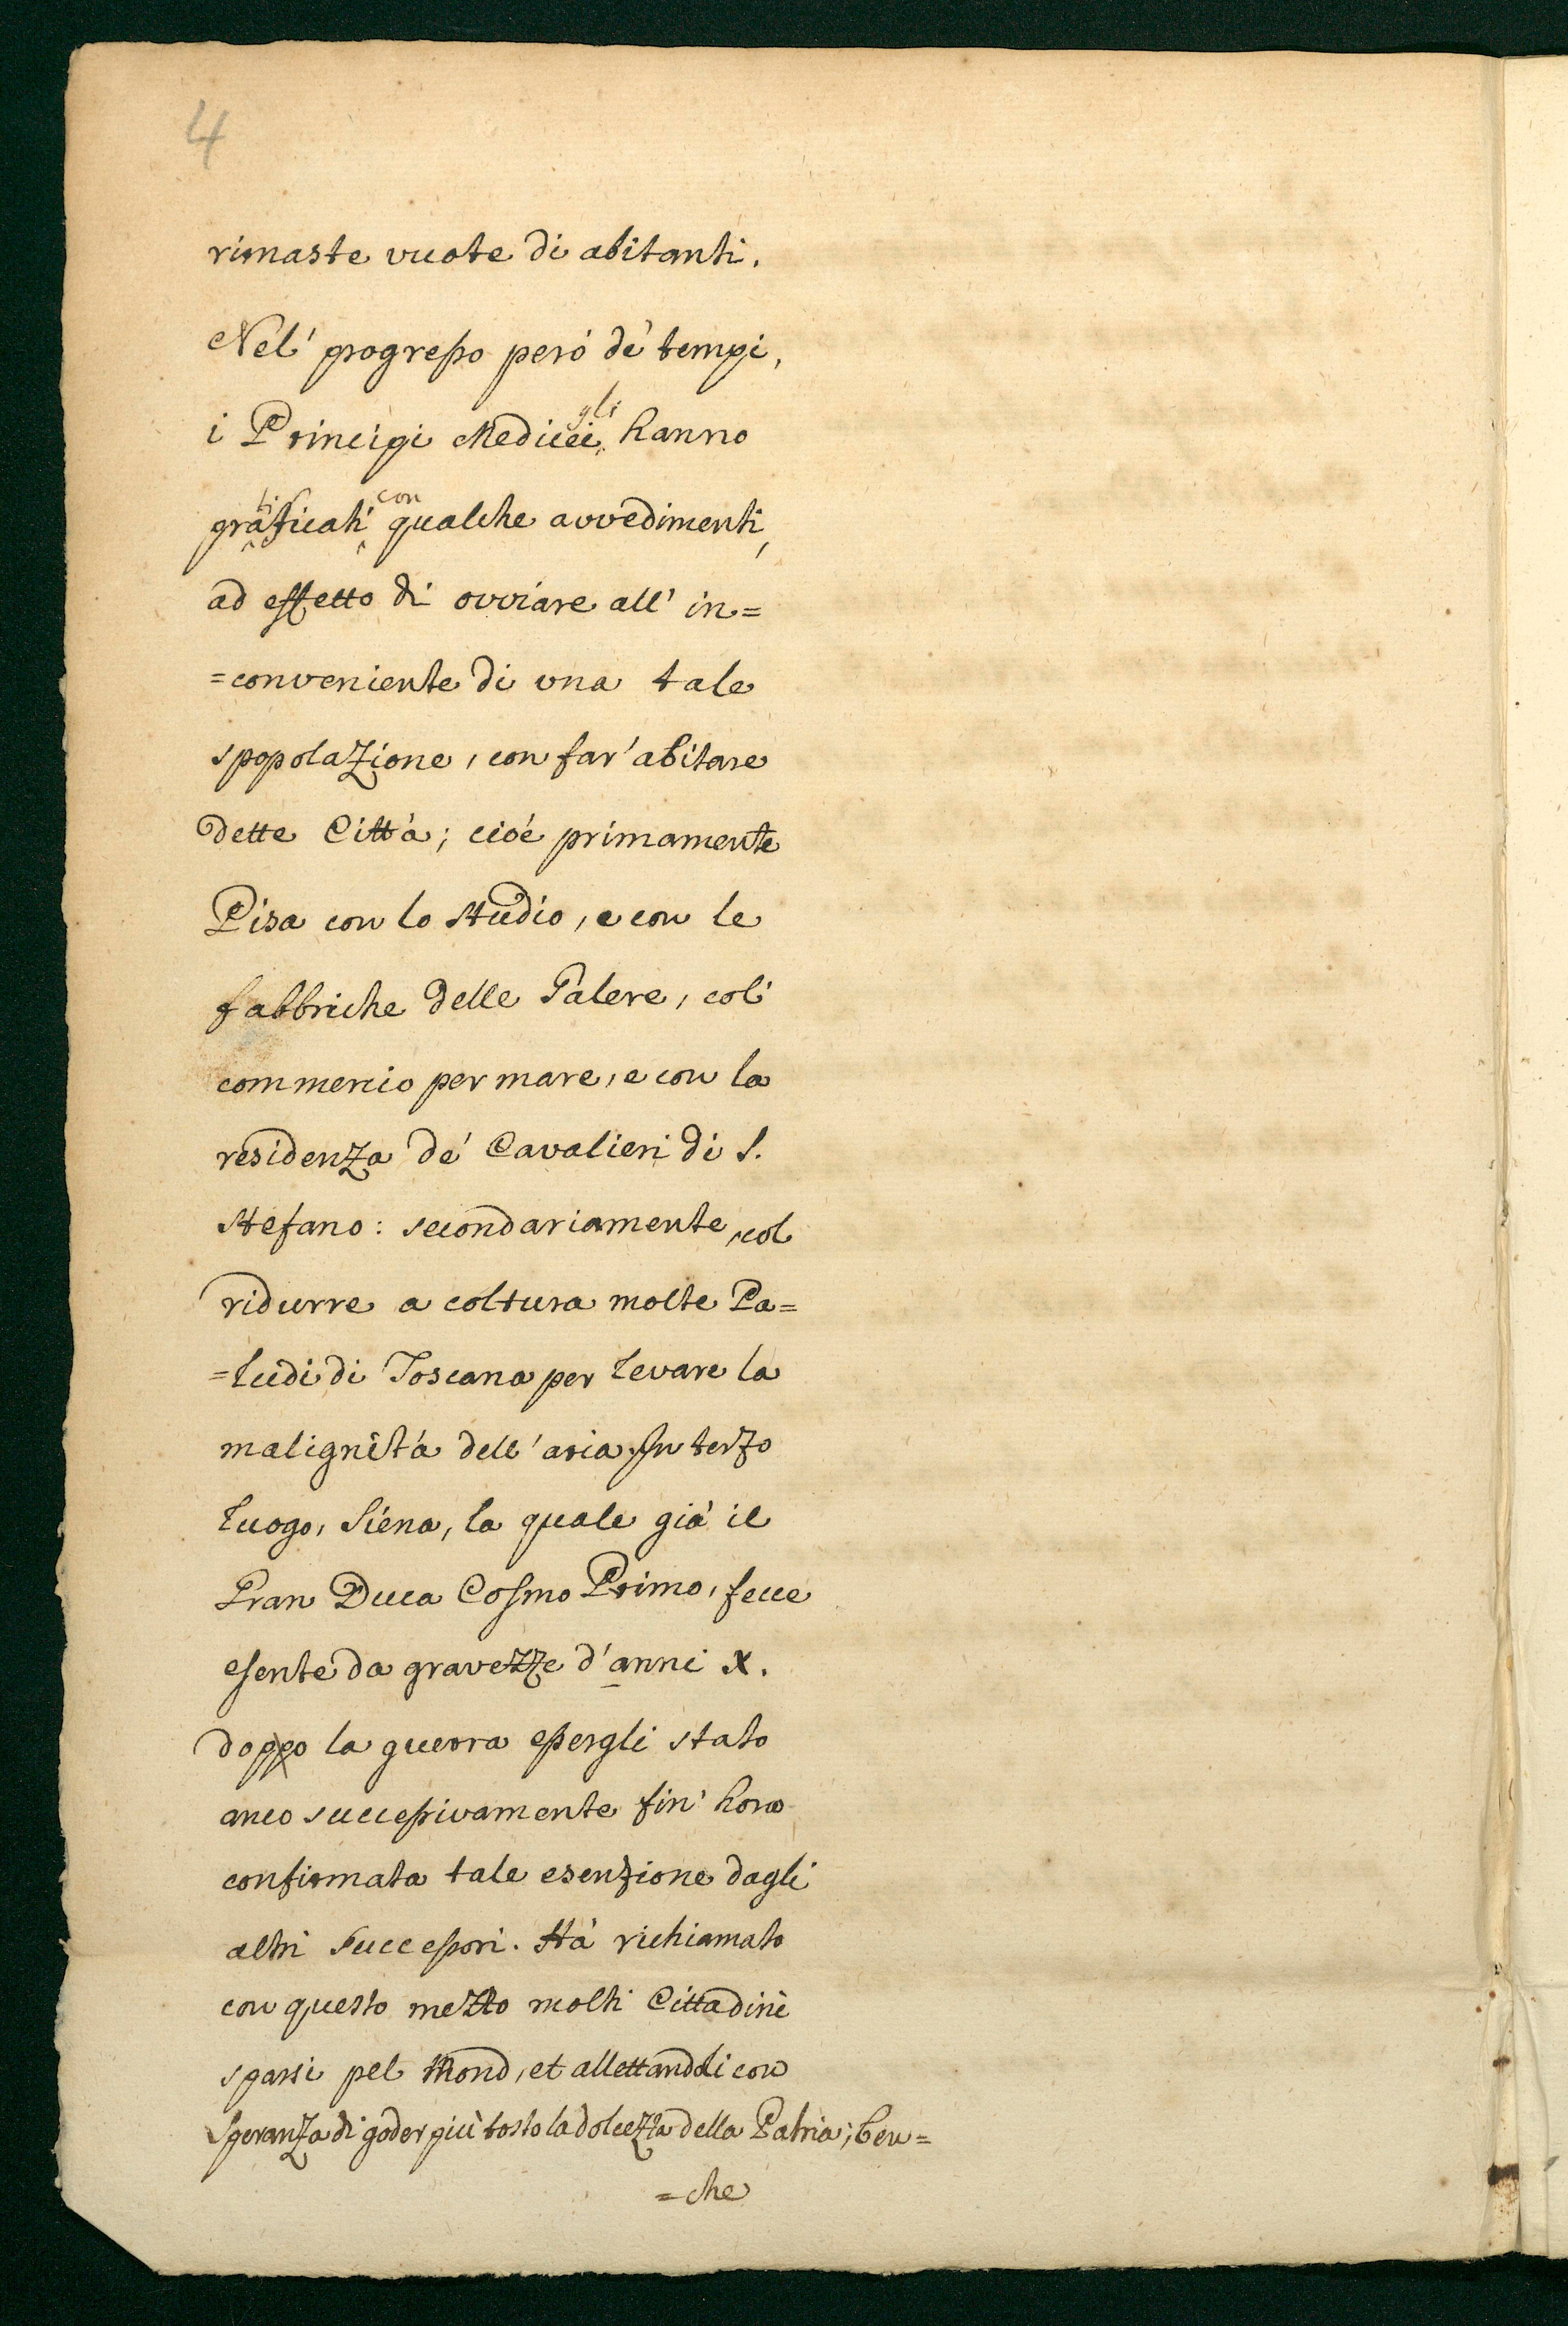 4
rimaste vuote di abitanti.
Nel' progresso però de' tempi,
i Principi Medicei gli hanno
gratificati con qualche avvedimenti,
ad effetto di ovviare all' in=
=conveniente di una tale
spopolazione, con far' abitare
dette Città; cioè primamente
Pisa con lo studio, e con le
fabbriche delle Galere, col'
commercio per mare, e con la
residenza de' Cavalieri di S.
Stefano: secondariamente, col
ridurre a coltura molte Pa=
=ludi di Toscana per levare la
malignità dell' aria. In terzo
luogo, Siena, la quale già il
Gran Duca Cosmo Primo, fece
esente da gravezze d' anni X.
doppo la guerra essergli stato
anco successivamente fin' hora
confirmata tale esenzione dagli
altri Successori. Hà richiamato
con questo mezzo molti Cittadini
sparsi pel Mond, et allettandoli con
speranza di goder più tosto la dolcezza della Patria; ben=
=che